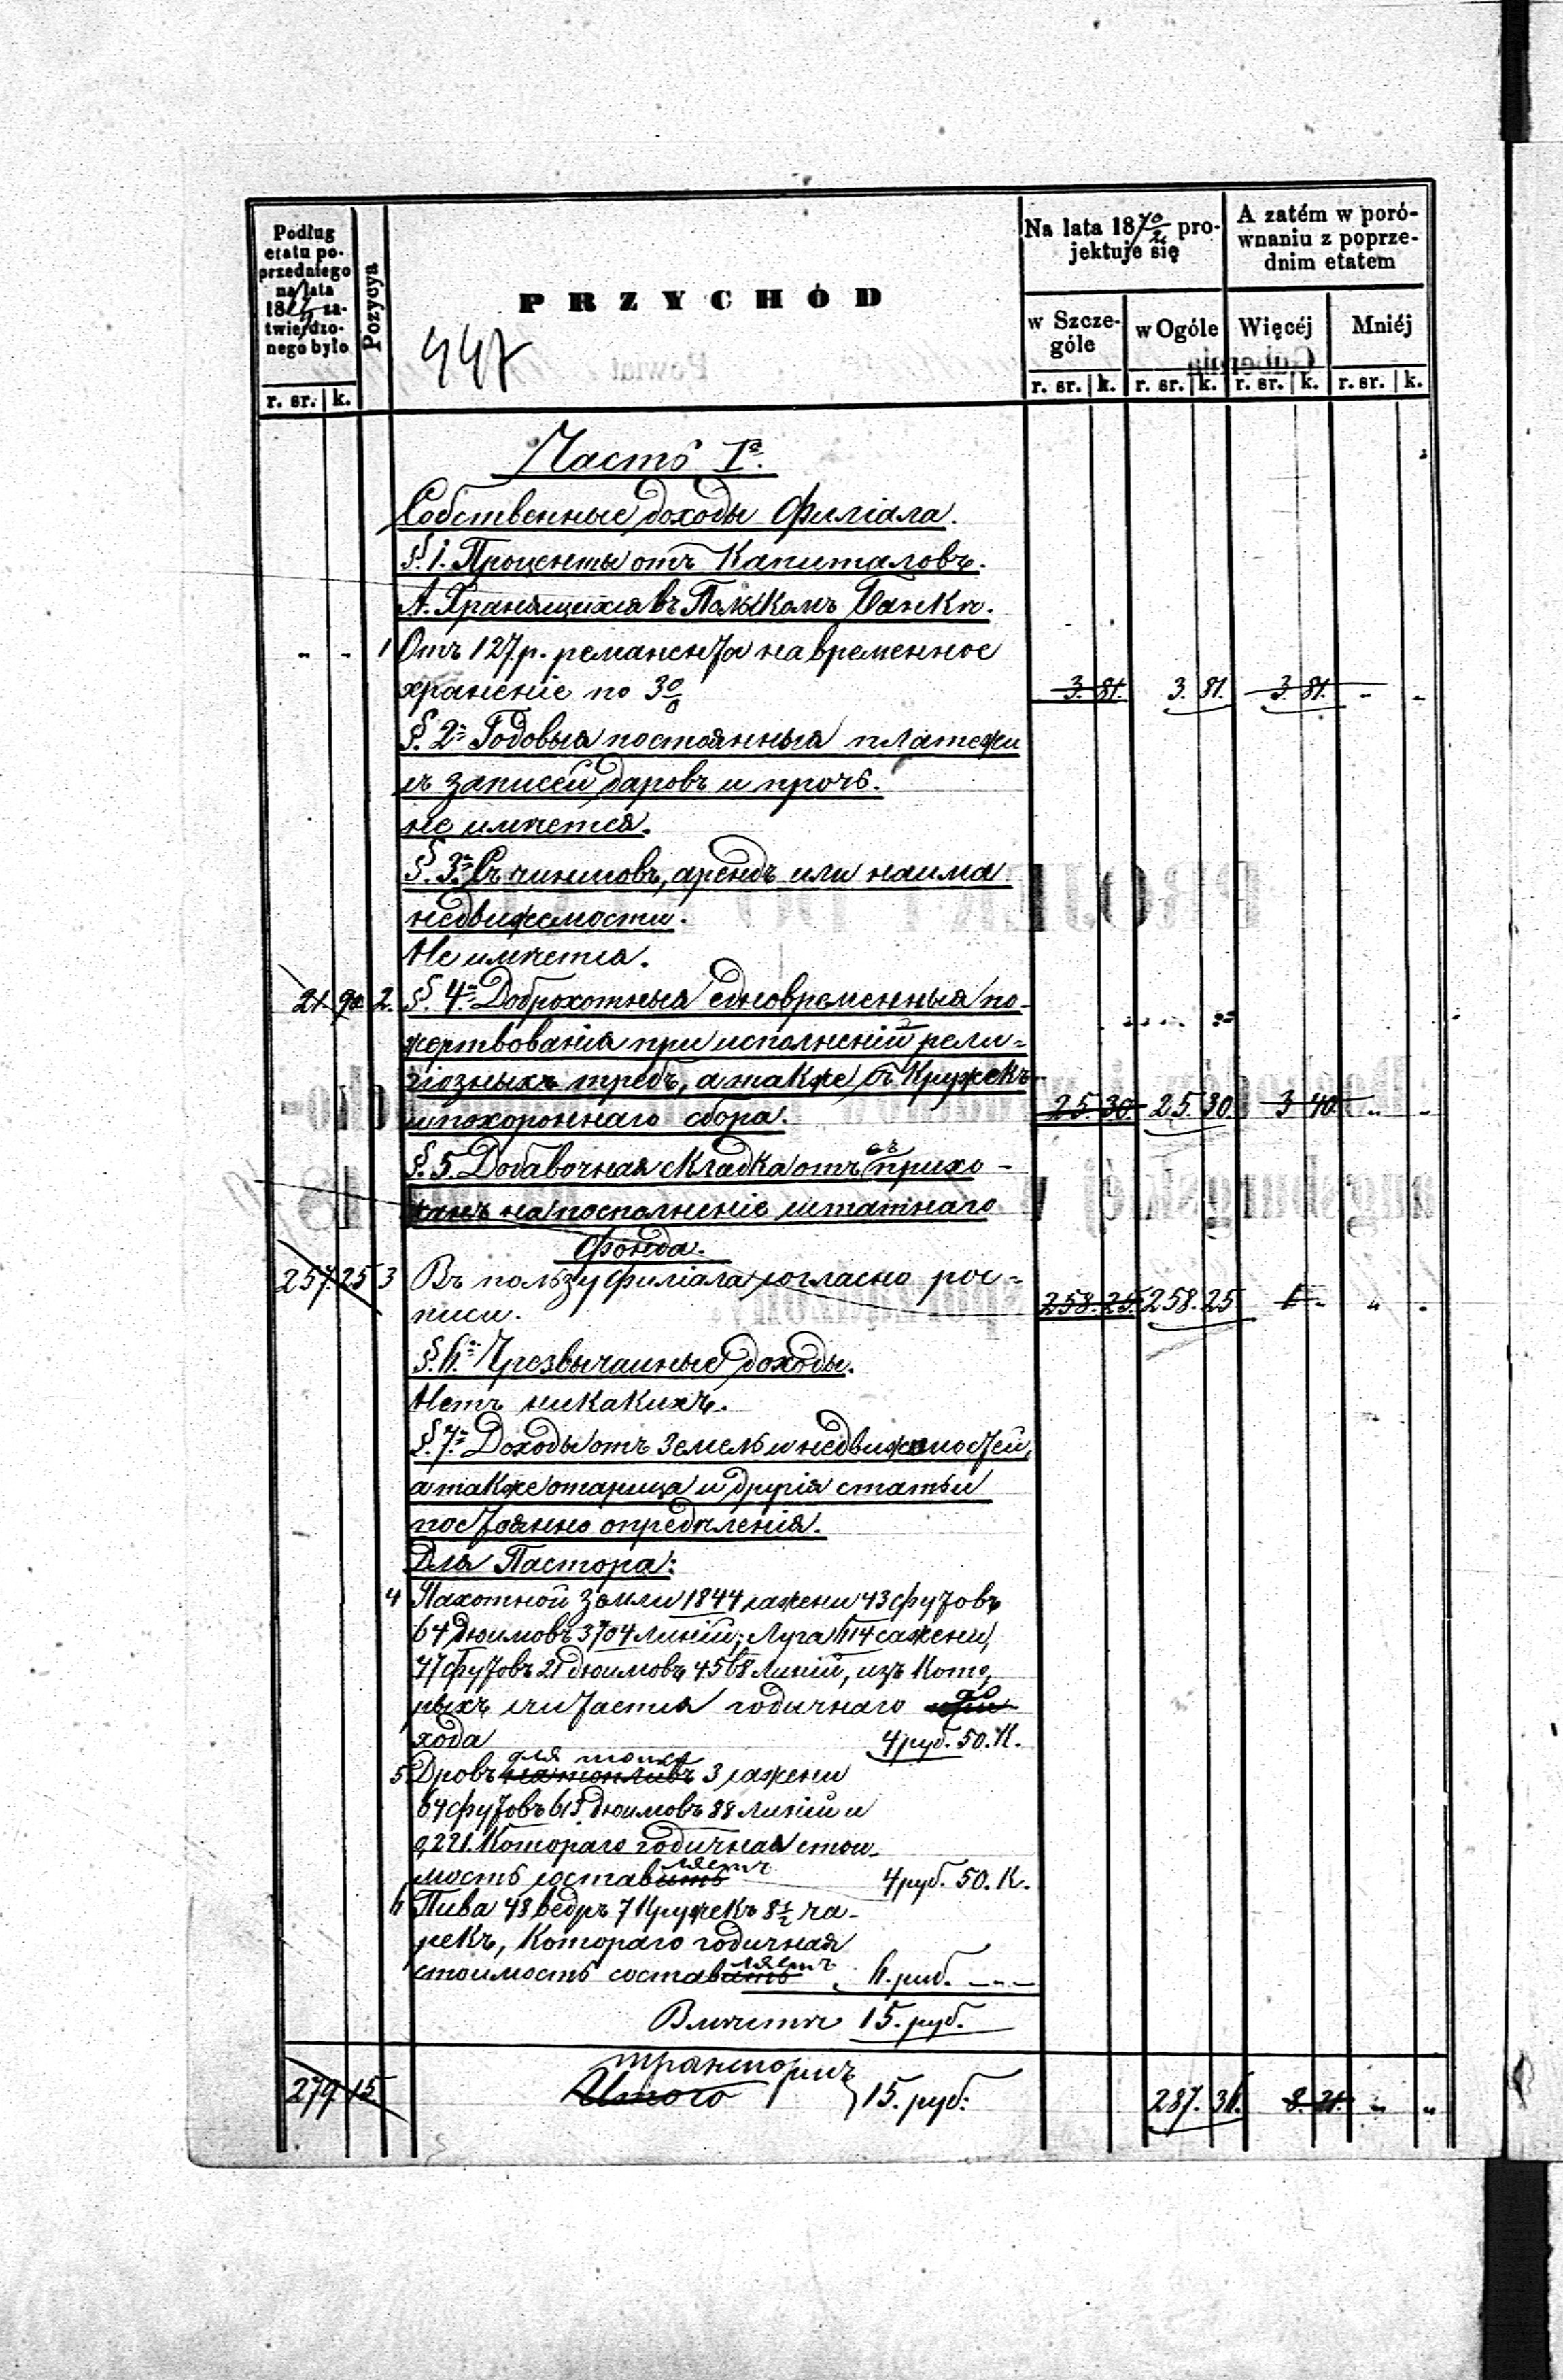 Podług
etatu po-
przedniego
na lata
18 za-
twierdzo-
nego było
r. sr. k.
Pozycya
PRZYCHÓD
447
Na lata 18 70/2 pro-
jektuje się
w Szcze-
góle
w Ogóle
r. sr. k. r. sr. k.
A zatém w poró-
wnaniu z poprze-
dnim etatem
Więcéj Mniéj
r. sr. k. r. sr. k.
Часть Iа.
Собственные доходы Филіала.
§ 1. Проценты отъ Капиталовъ.
А. Хранящихся въ Польскомъ Банкѣ.
„ „ 1 Отъ 127 р. реманента на временное
храненіе по 3% 3. 81. 3. 81. 3. 81. „ „
§. 2й Годовыя постоянныя платежи
съ записей даровъ и проч.
не имѣется.
§. 3й Съ чиншовъ, арендъ или найма
недвижемости.
Не имѣется.
21. 90 2. §. 4й Доброхотныя едновременныя по-
жертвованія при исполненій рели-
гіозныхъ требъ, а также съ Кружекъ
и похороннаго сбора. 25. 30. 25. 30. 3 40. „ „
§. 5. Добавочная складка отъ съ прихо-
жанъ на пополненіе штатнаго
Фонда.
257. 25 3 Въ пользу Филіала согласно рос-
писи. 258. 25. 258. 25 1 - „ „
§. 6й Чрезвычайные доходы.
Нетъ никакихъ.
§. 7й Доходы отъ земель и недвижимостей,
а также и другія статьи
постоянно опредѣленія.
Для Пастора:
4 Пахотной Земли 1844 сажени 43 футовъ
64 дюймовъ 3704 линій; Луга 614 сажени,
77 футовъ 21 дюймовъ 4568 линій, изъ Кото-
рыхъ считается годичнаго до
хода 4 руб. 50. К.
для топки
5. Дровъ на топливъ 3 сажени
64 футовъ 613 дюймовъ 88 линій и
0,221. Котораго годичная стои-
ляетъ
мость составитъ 4 руб. 50. К.
6 Пива 48 ведръ 7 Кружекъ 8 1/2 ча-
рекъ, Котораго годичная
ляетъ
стоимость составитъ 6. руб. -„-
Вместѣ 15. руб.
транспортъ
279 15 Итого 15. руб. 287. 36. 8. 21. „ „